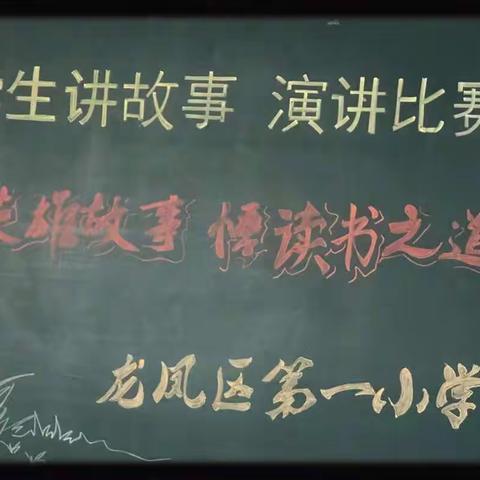 学生讲故事 演讲比赛
英雄故事 悟读书之道
龙凤区第一小学